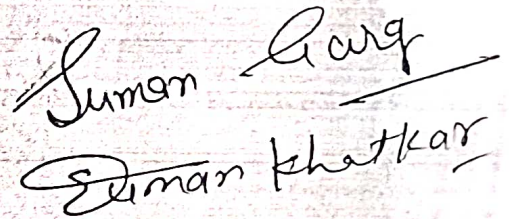 Suman Garg
Suman Khatkar